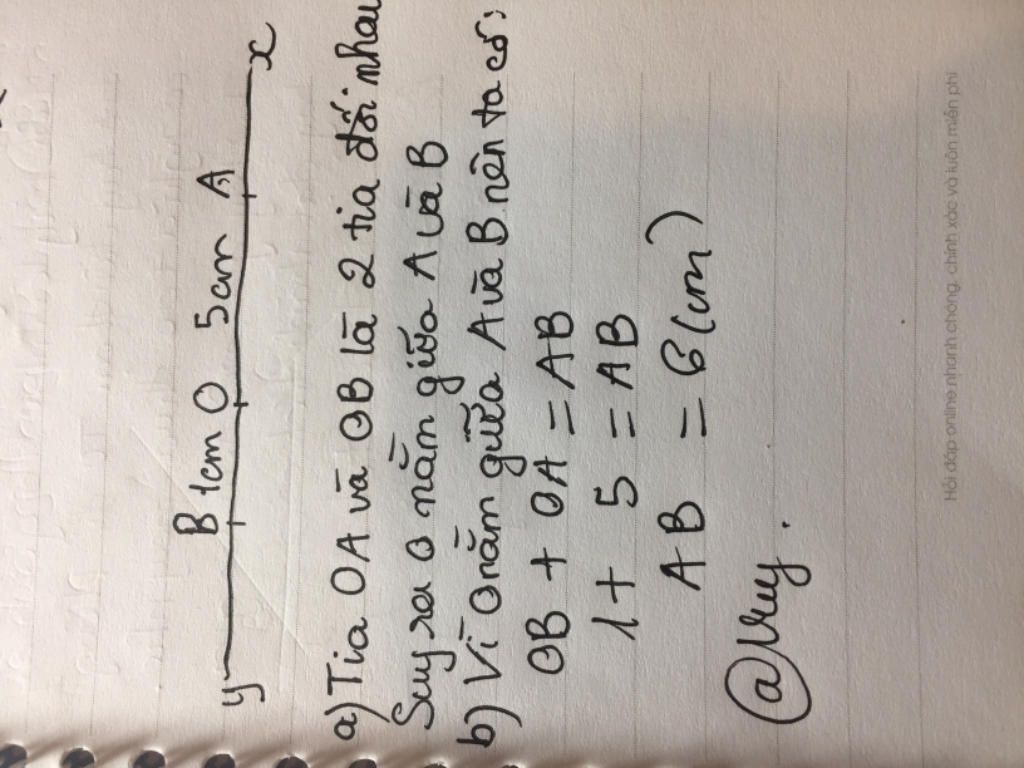 y B 1cm O 5cm A x
a) Tia OA và OB là 2 tia đối nhau
Suy ra O nằm giữa A và B
b) Vì O nằm giữa A và B nên ta có:
OB + OA = AB
1 + 5 = AB
AB = 6 (cm)
@Vuy.
Hỏi đáp online nhanh chóng, chính xác và luôn miễn phí